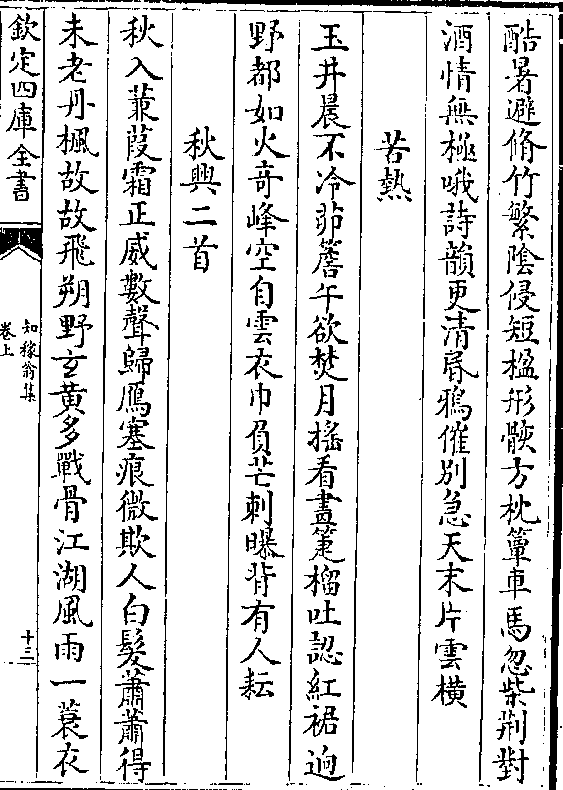 酷暑避脩竹繁陰侵短楹形骸方枕簟車馬忽柴荆對
酒情無極哦詩韻更清昏鴉催別急天末片雲橫
苦熱
玉井晨不冷茆簷午欲焚月搖看畫箑榴吐認紅裙逈
野都如火奇峰空自雲衣巾負芒刺曝背有人耘
秋興二首
秋入蒹葭霜正威數聲歸鴈塞痕微欺人白髮蕭蕭得
未老丹楓故故飛朔野玄黃多戰骨江湖風雨一蓑衣
欽定四庫全書
知稼翁集
卷上
十三